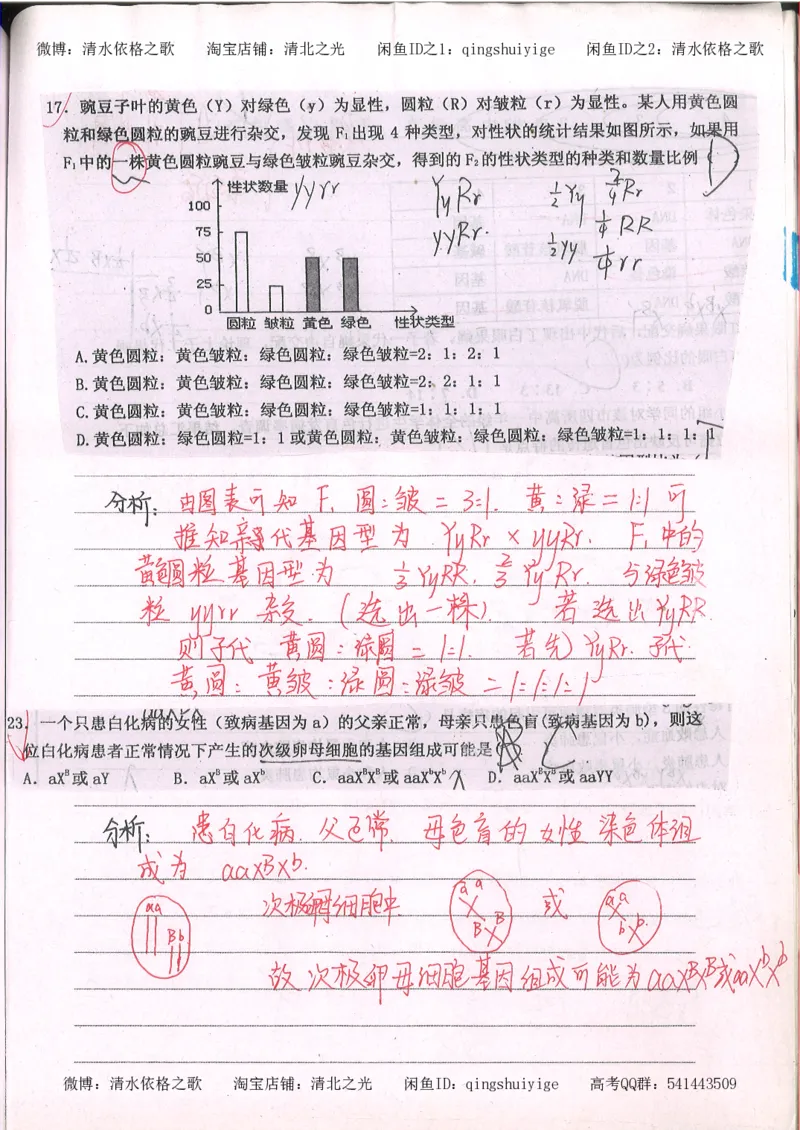 微博：清水依格之歌 淘宝店铺：清北之光 闲鱼ID之1：qingshuiyige 闲鱼ID之2：清水依格之歌
17．豌豆子叶的黄色（Y）对绿色（y）为显性，圆粒（R）对皱粒（r）为显性。某人用黄色圆
粒和绿色圆粒的豌豆进行杂交，发现 F₁出现 4 种类型，对性状的统计结果如图所示，如果用
F₁中的一株黄色圆粒豌豆与绿色皱粒豌豆杂交，得到的 F₂的性状类型的种类和数量比例 D
性状数量 yyrr
YyRr ½Yy 2/4Rr
yyRr. ½yy ¼RR
¼rr
100
75
50
25
0
圆粒 皱粒 黄色 绿色 性状类型
A.黄色圆粒：黄色皱粒：绿色圆粒：绿色皱粒=2：1：2：1
B.黄色圆粒：黄色皱粒：绿色圆粒：绿色皱粒=2：2：1：1
C.黄色圆粒：黄色皱粒：绿色圆粒：绿色皱粒=1：1：1：1
D.黄色圆粒：绿色圆粒=1：1 或黄色圆粒：黄色皱粒：绿色圆粒：绿色皱粒=1：1：1：1
分析：由图表可知 F₁ 圆：皱 = 3:1. 黄：绿 = 1:1 可
推知亲代基因型为 YyRr × yyRr. F₁中的
黄色圆粒基因型为 ⅓YyRR, ⅔YyRr. 与绿色皱
粒 yyrr 杂交.（选出一棵）. 若选出YyRR
则子代 黄圆：绿圆 = 1:1. 若选YyRr. 子代
黄圆：黄皱：绿圆：绿皱 = 1:1:1:1
23．一个只患白化病的女性（致病基因为 a）的父亲正常，母亲只患色盲(致病基因为 b)，则这
位白化病患者正常情况下产生的次级卵母细胞的基因组成可能是 C
A．aXᴮ或 aY B．aXᴮ或 aXᵇ C．aaXᴮXᴮ或 aaXᵇXᵇ D．aaXᴮXᴮ或 aaYY
分析：患白化病. 父正常. 母色盲的女性染色体组
成为 aaXᴮXᵇ.
次极卵母细胞中 或
aa
Bb
a a
B B
a a
b b
故次极卵母细胞基因组成可能为aaXᴮXᴮ或aaXᵇXᵇ
微博：清水依格之歌 淘宝店铺：清北之光 闲鱼ID：qingshuiyige 高考QQ群：541443509